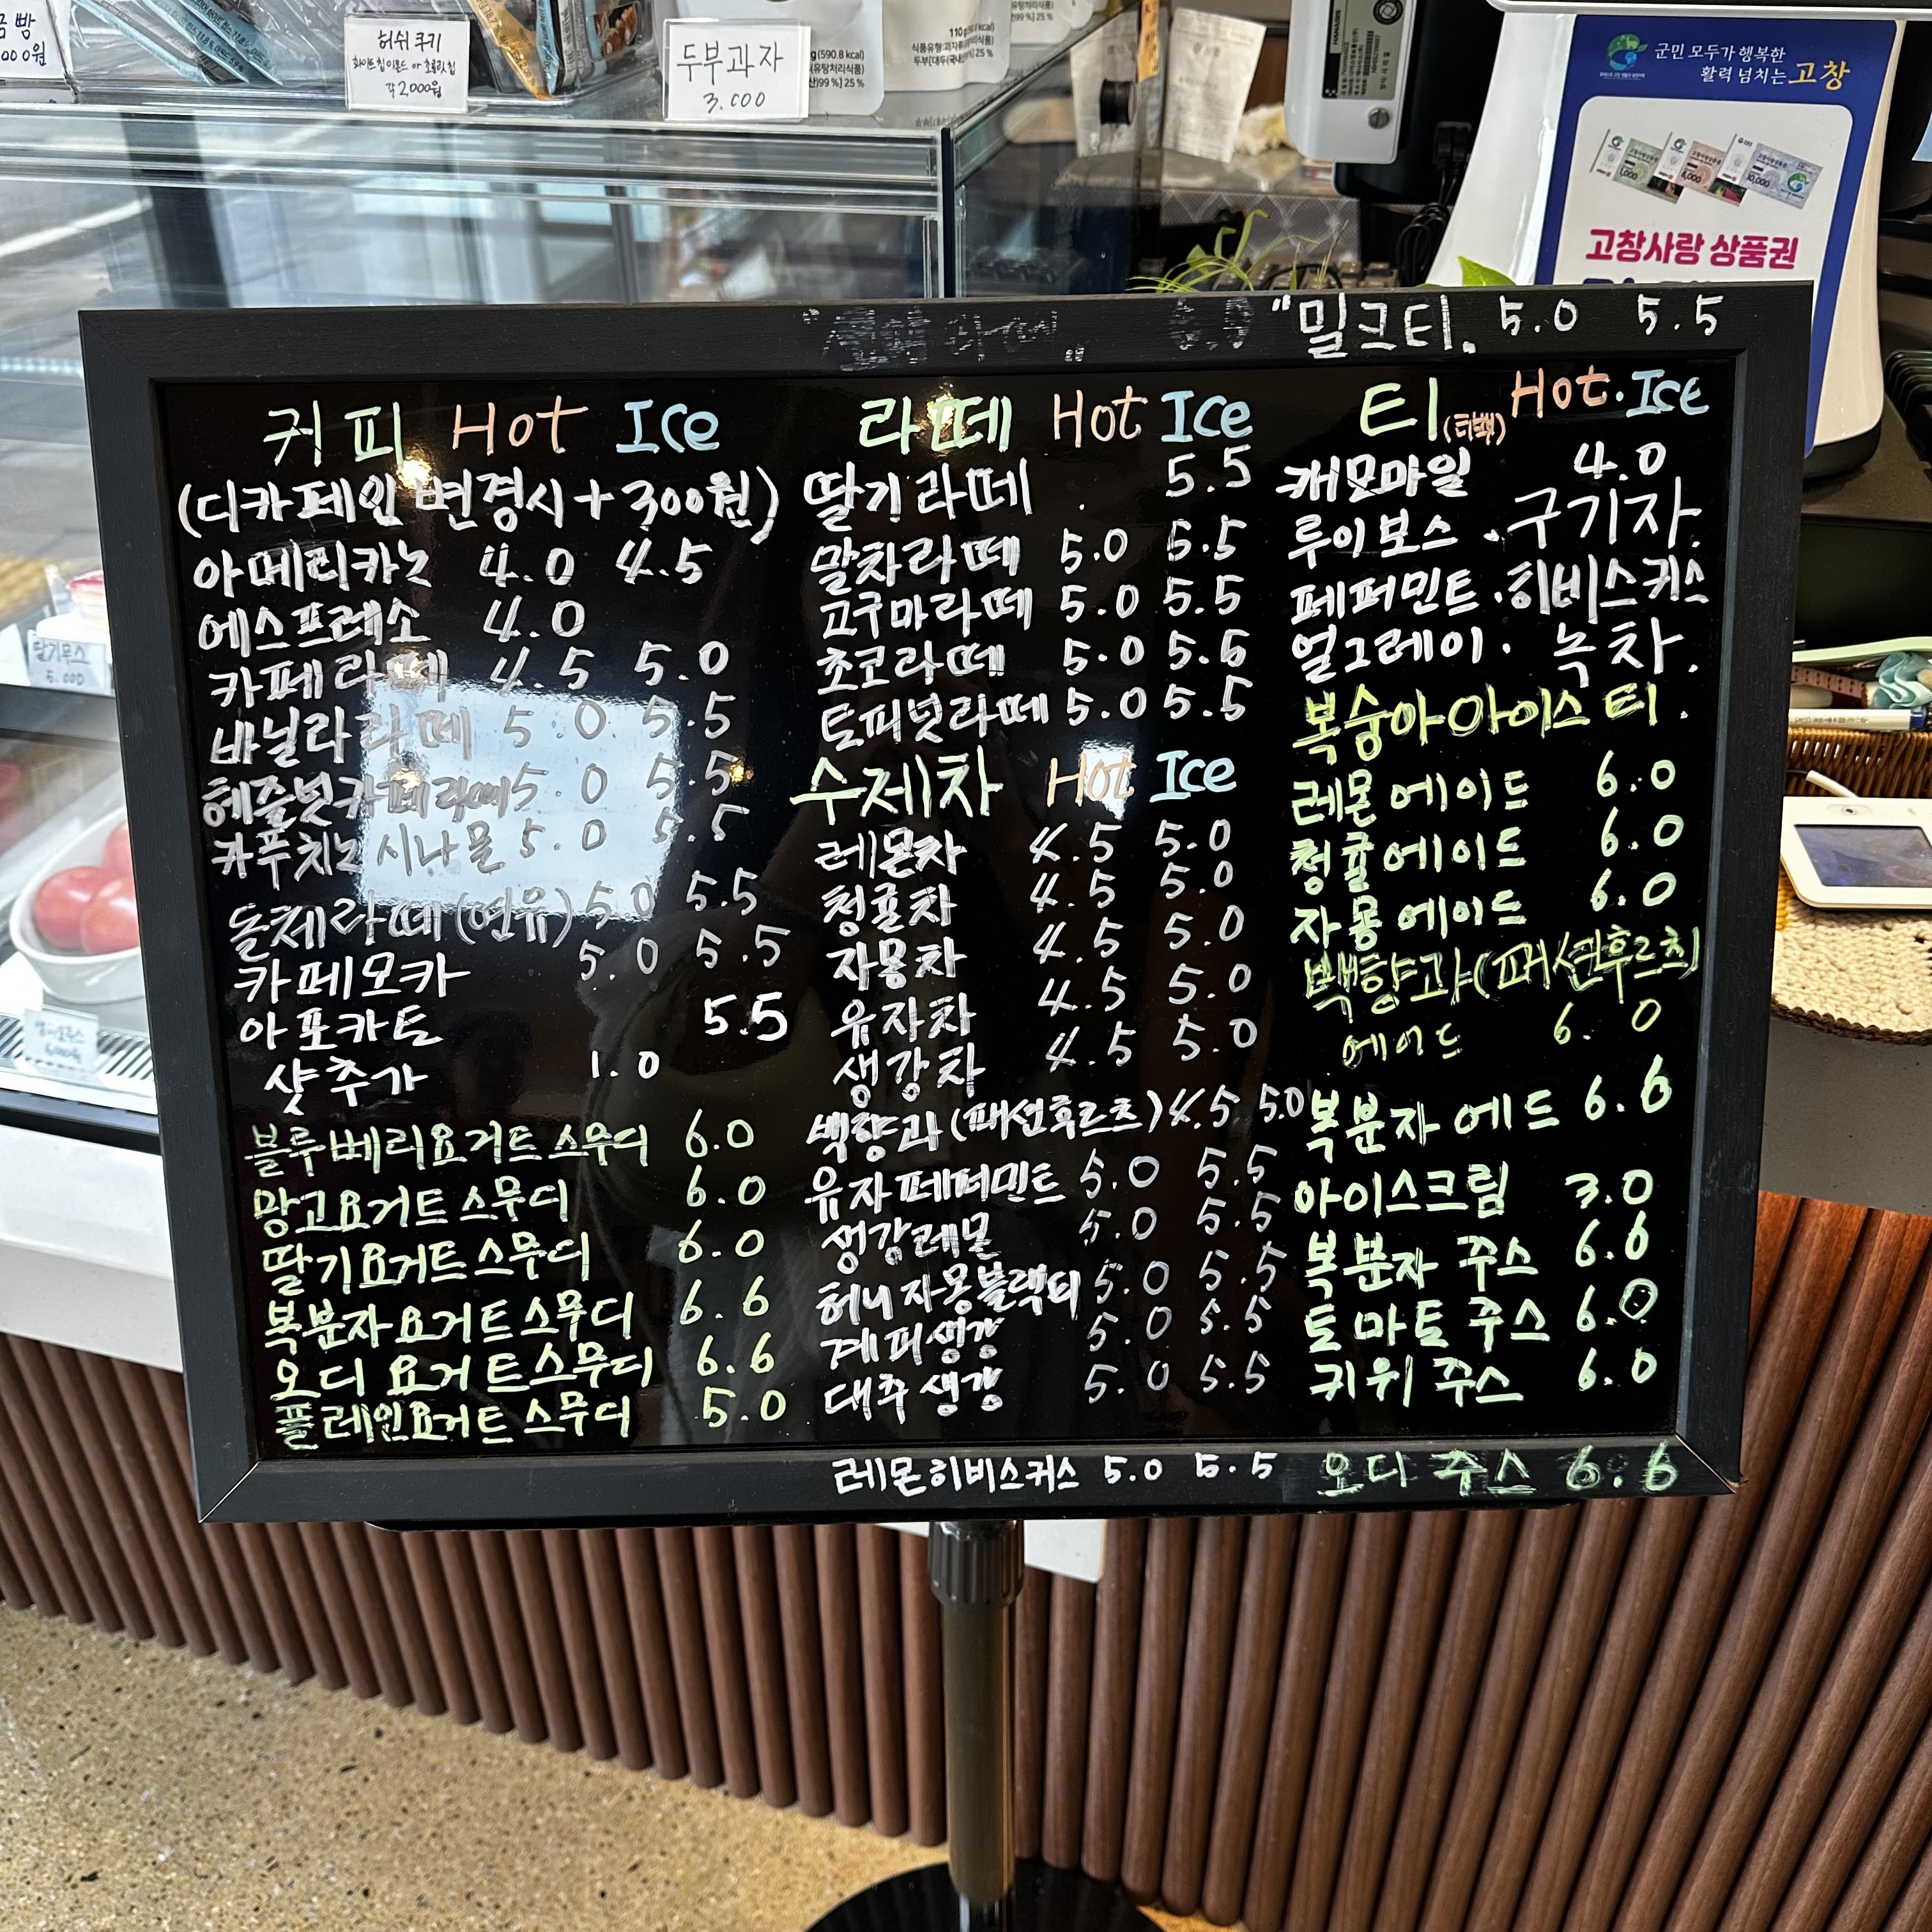 허쉬 쿠키
각 2,000원
두부과자
3.000
110g(590.8 kcal)
군민 모두가 행복한
활력 넘치는 고창
1,000
5,000
10,000
고창사랑 상품권
딸기무스
5.000
"밀크티" 5.0 5.5
커피 Hot Ice
(디카페인 변경시 + 300원)
아메리카노 4.0 4.5
에스프레소 4.0
카페라떼 4.5 5.0
바닐라라떼 5.0 5.5
헤즐넛카페라떼 5.0 5.5
카푸치노 시나몬 5.0 5.5
돌체라떼(연유) 5.0 5.5
카페모카 5.0 5.5
아포카토 5.5
샷추가 1.0
블루베리요거트스무디 6.0
망고요거트스무디 6.0
딸기요거트스무디 6.0
복분자요거트스무디 6.6
오디요거트스무디 6.6
플레인요거트스무디 5.0
라떼 Hot Ice
딸기라떼 . 5.5
말차라떼 5.0 5.5
고구마라떼 5.0 5.5
초코라떼 5.0 5.5
토피넛라떼 5.0 5.5
수제차 Hot Ice
레몬차 4.5 5.0
청귤차 4.5 5.0
자몽차 4.5 5.0
유자차 4.5 5.0
생강차 4.5 5.0
백향과(패션후르츠) 4.5 5.0
유자페퍼민트 5.0 5.5
생강레몬 5.0 5.5
허니자몽블랙티 5.0 5.5
계피생강 5.0 5.5
대추생강 5.0 5.5
레몬히비스커스 5.0 5.5
티(티백) Hot.Ice
캐모마일 4.0
루이보스 . 구기자.
페퍼민트 . 히비스커스
얼그레이 . 녹차.
복숭아아이스티.
레몬에이드 6.0
청귤에이드 6.0
자몽에이드 6.0
백향과(패션후르츠)
에이드 6.0
복분자에드 6.6
아이스크림 3.0
복분자 주스 6.6
토마토 주스 6.0
키위 주스 6.0
오디 주스 6.6